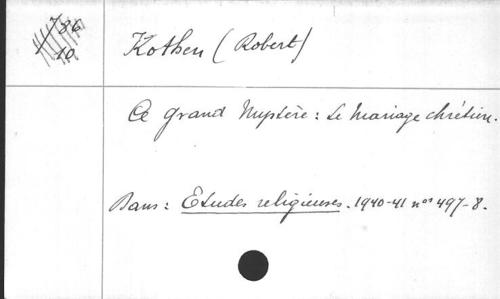 786
10
Kothen (Robert)
Ce grand Mystère : Le Mariage chrétien.
Dans : Etudes religieuses. 1940-41 nos 497-8.